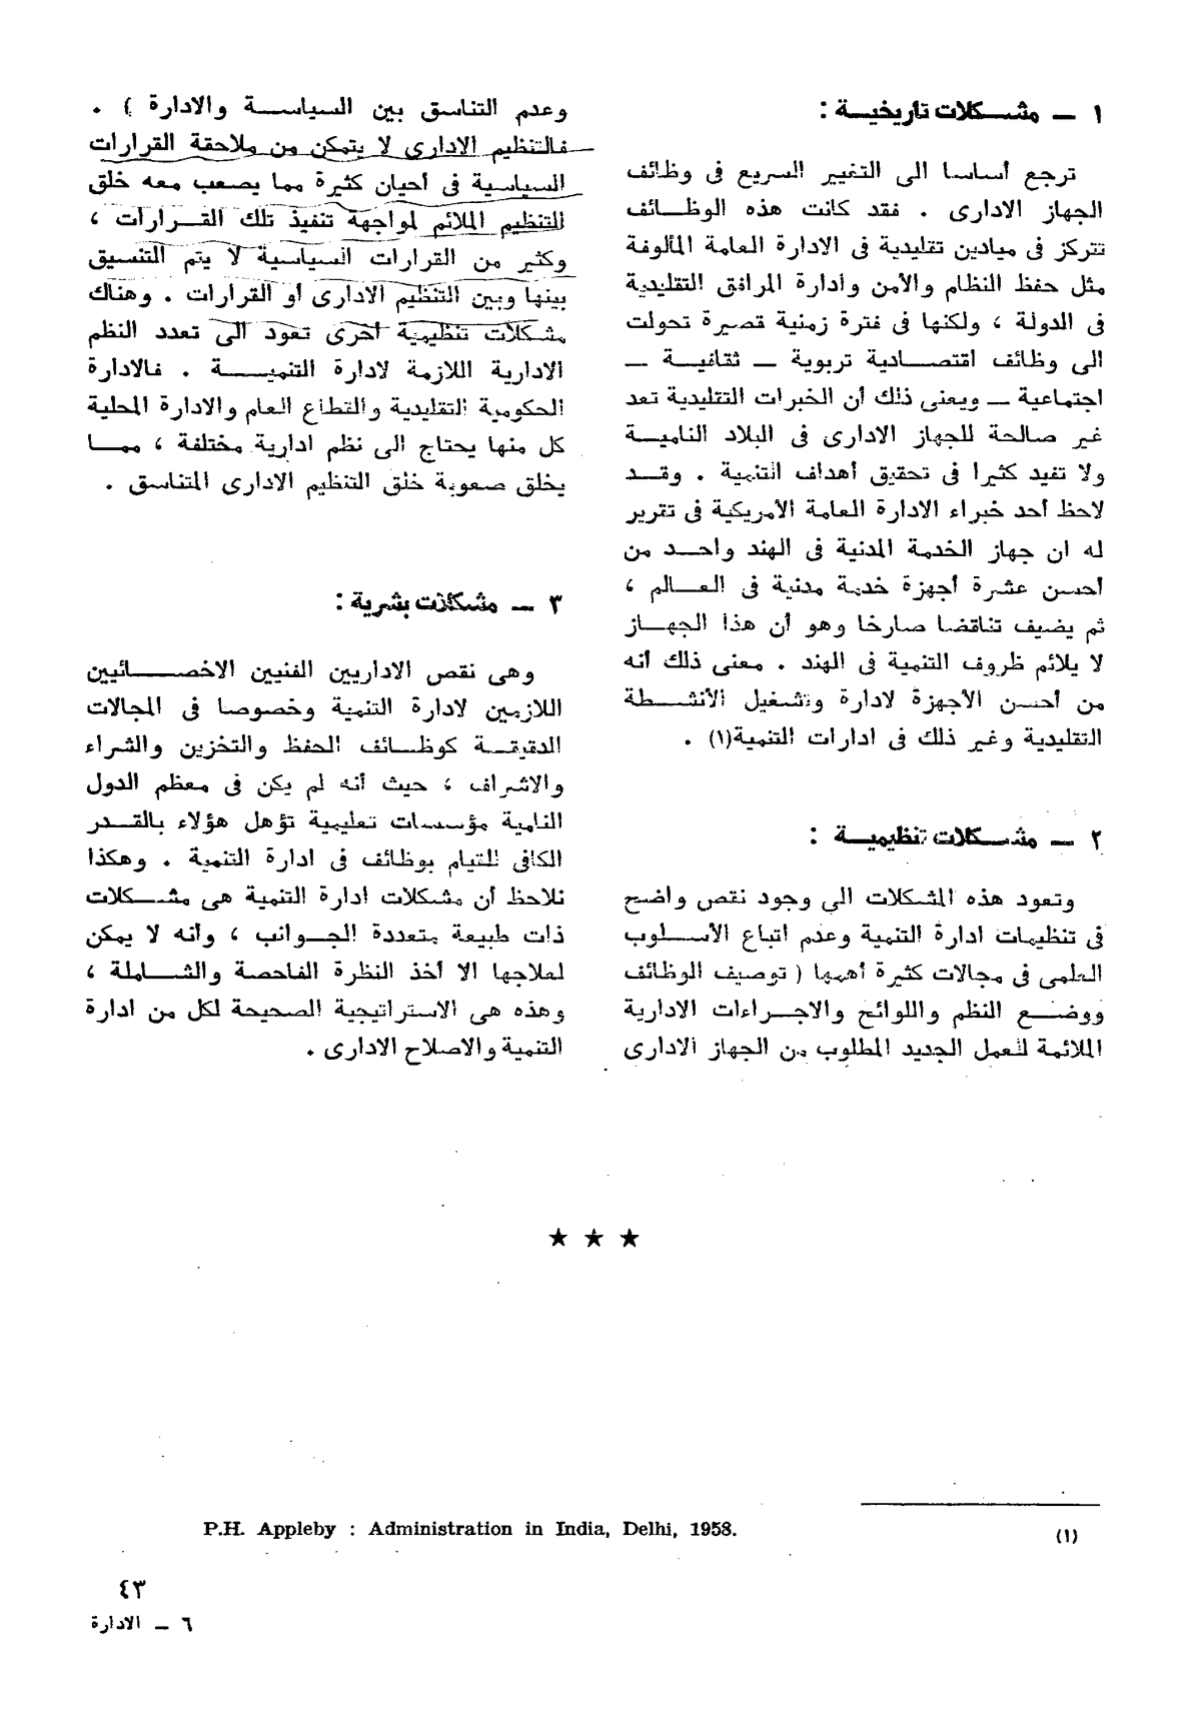 ١ — مشكلات تاريخية :
ترجع أساسا الى التغيير السريع فى وظائف
الجهاز الادارى . فقد كانت هذه الوظائف
تتركز فى ميادين تقليدية فى الادارة العامة المألوفة
مثل حفظ النظام والأمن وادارة المرافق التقليدية
فى الدولة ، ولكنها فى فترة زمنية قصيرة تحولت
الى وظائف اقتصادية تربوية — ثقافية —
اجتماعية — ويعنى ذلك أن الخبرات التقليدية تعد
غير صالحة للجهاز الادارى فى البلاد النامية
ولا تفيد كثيرا فى تحقيق أهداف التنمية . وقد
لاحظ أحد خبراء الادارة العامة الأمريكية فى تقرير
له ان جهاز الخدمة المدنية فى الهند واحد من
أحسن عشرة أجهزة خدمة مدنية فى العالم ،
ثم يضيف تناقضا صارخا وهو أن هذا الجهاز
لا يلائم ظروف التنمية فى الهند . معنى ذلك أنه
من أحسن الأجهزة لادارة وتشغيل الأنشطة
التقليدية وغير ذلك فى ادارات التنمية(١) .
٢ — مشكلات تنظيمية :
وتعود هذه المشكلات الى وجود نقص واضح
فى تنظيمات ادارة التنمية وعدم اتباع الأسلوب
العلمى فى مجالات كثيرة أهمها ( توصيف الوظائف
ووضع النظم واللوائح والاجراءات الادارية
الملائمة للعمل الجديد المطلوب من الجهاز الادارى
وعدم التناسق بين السياسة والادارة ) .
فالتنظيم الادارى لا يتمكن من ملاحقة القرارات
السياسية فى أحيان كثيرة مما يصعب معه خلق
التنظيم الملائم لمواجهة تنفيذ تلك القرارات ،
وكثير من القرارات السياسية لا يتم التنسيق
بينها وبين التنظيم الادارى أو القرارات . وهناك
مشكلات تنظيمية أخرى تعود الى تعدد النظم
الادارية اللازمة لادارة التنمية . فالادارة
الحكومية التقليدية والقطاع العام والادارة المحلية
كل منها يحتاج الى نظم ادارية مختلفة ، مما
يخلق صعوبة خلق التنظيم الادارى المتناسق .
٣ — مشكلات بشرية :
وهى نقص الاداريين الفنيين الاخصائيين
اللازمين لادارة التنمية وخصوصا فى المجالات
الدقيقة كوظائف الحفظ والتخزين والشراء
والاشراف ، حيث أنه لم يكن فى معظم الدول
النامية مؤسسات تعليمية تؤهل هؤلاء بالقدر
الكافى للقيام بوظائف فى ادارة التنمية . وهكذا
نلاحظ أن مشكلات ادارة التنمية هى مشكلات
ذات طبيعة متعددة الجوانب ، وأنه لا يمكن
لعلاجها الا أخذ النظرة الفاحصة والشاملة ،
وهذه هى الاستراتيجية الصحيحة لكل من ادارة
التنمية والاصلاح الادارى .
★ ★ ★
(١) P.H. Appleby : Administration in India, Delhi, 1958.
٤٣
٦ — الادارة